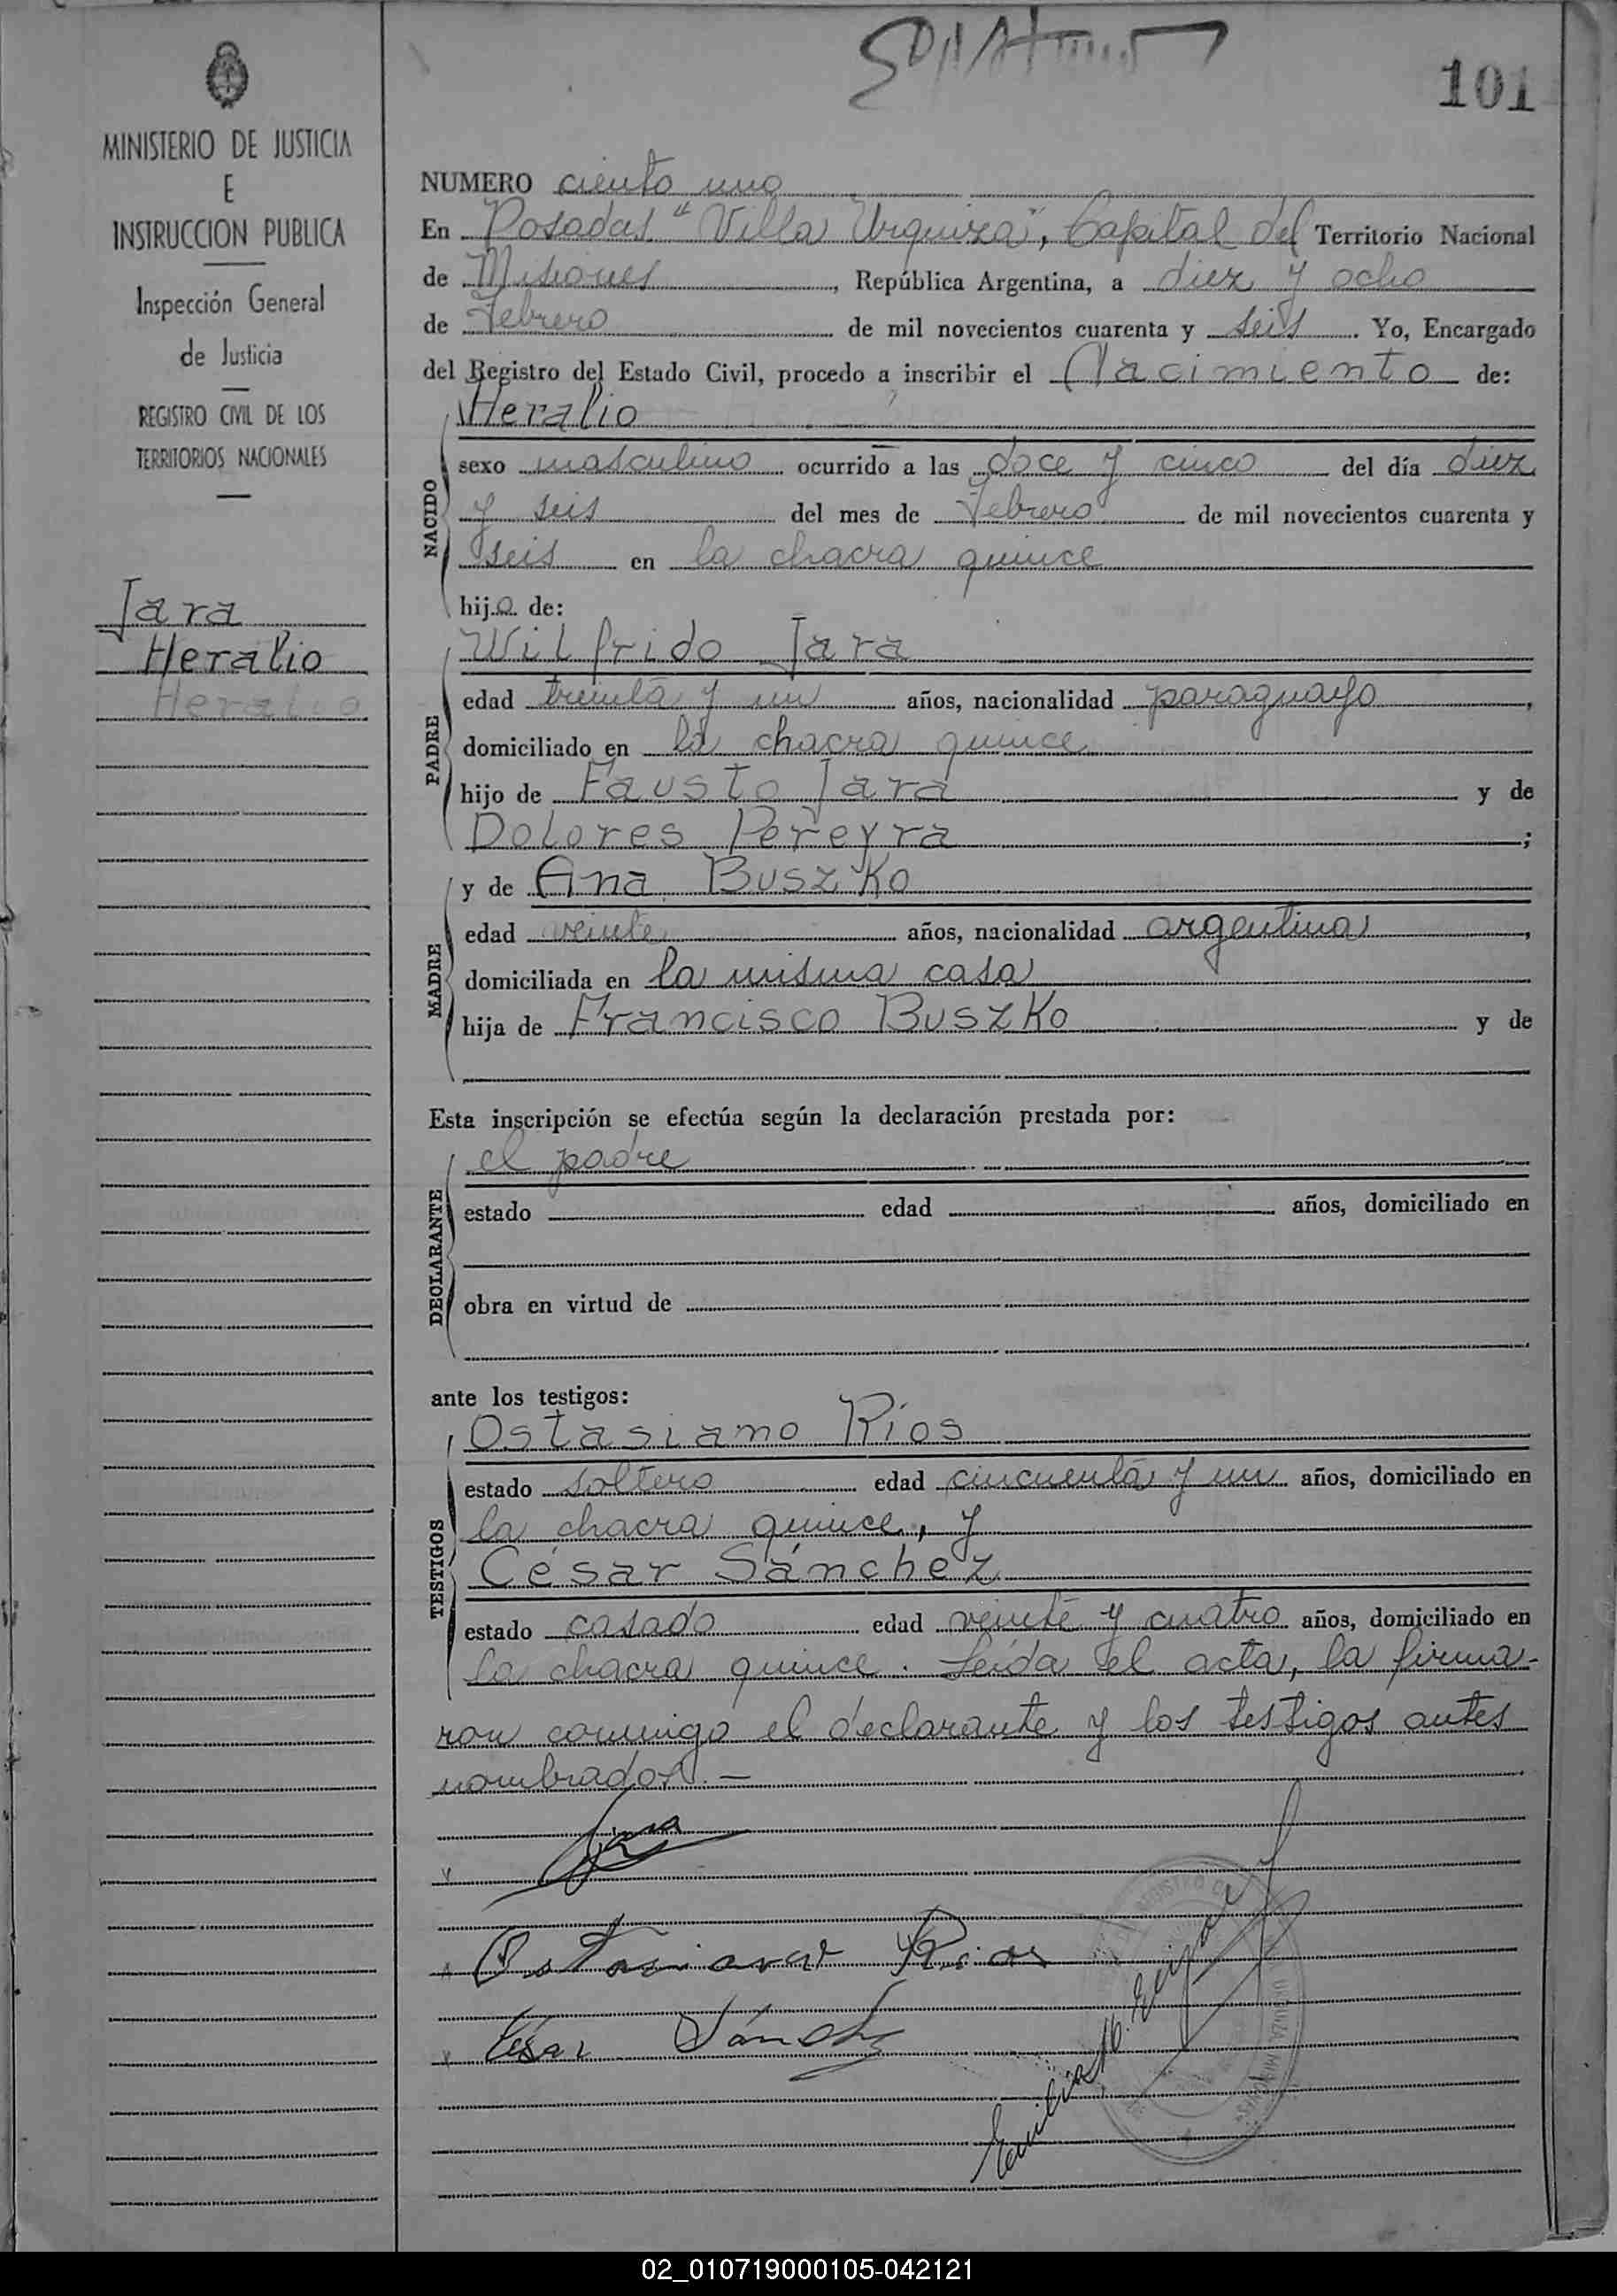 101
MINISTERIO DE JUSTICIA
E
INSTRUCCION PUBLICA
Inspección General
de Justicia
REGISTRO CIVIL DE LOS
TERRITORIOS NACIONALES
Jara
Heralio
Heralio
NUMERO ciento uno
En Posadas "Villa Urquiza", Capital del Territorio Nacional
de Misiones, República Argentina, a diez y ocho
de Febrero de mil novecientos cuarenta y seis. Yo, Encargado
del Registro del Estado Civil, procedo a inscribir el Nacimiento de:
NACIDO
Heralio
sexo masculino ocurrido a las doce y cinco del día diez
y seis del mes de Febrero de mil novecientos cuarenta y
seis en la chacra quince
hijo de:
PADRE
Wilfrido Jara
edad treinta y un años, nacionalidad paraguayo,
domiciliado en la chacra quince
hijo de Fausto Jara y de
Dolores Pereyra;
MADRE
y de Ana Buszko
edad veinte años, nacionalidad argentina,
domiciliada en la misma casa
hija de Francisco Buszko y de
Esta inscripción se efectúa según la declaración prestada por:
DECLARANTE
el padre
estado edad años, domiciliado en
obra en virtud de
ante los testigos:
TESTIGOS
Ostasiano Ríos
estado soltero edad cincuenta y un años, domiciliado en
la chacra quince, y
César Sánchez
estado casado edad veinte y cuatro años, domiciliado en
la chacra quince. Leída el acta, la firma-
ron conmigo el declarante y los testigos antes
nombrados.-
Jara
Ostasiano Rios
César Sánchez
02_010719000105-042121